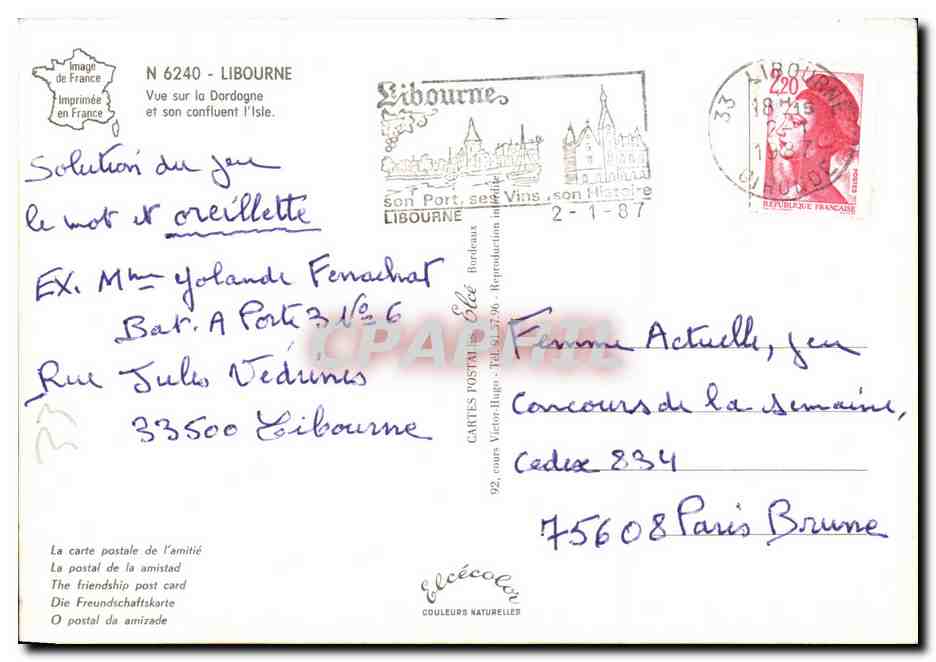 Image
de France
Imprimée
en France
N 6240 - LIBOURNE
Vue sur la Dordogne
et son confluent l'Isle.
Solution du jeu
le mot et oreillette
EX. Mme Yolande
Bat. A Porte 3 No 6
Rue Jules Védrines
33500 Libourne
La carte postale de l'amitié
La postal de la amistad
The friendship post card
Die Freundschaftskarte
O postal da amizade
Libourne
son Port, ses Vins, son Histoire
LIBOURNE 2-1-87
33 LIBOURNE
18 H 15
2-1
1987
GIRONDE
2,20
POSTES
REPUBLIQUE FRANÇAISE
CARTES POSTALES Elcé Bordeaux
92, cours Victor-Hugo - Tél. 91.57.96 - Reproduction interdite
CPAPHIL
Femme Actuelle, jeu
Concours de la semaine,
Cedex 834
75608 Paris Brune
Elcécolor
COULEURS NATURELLES